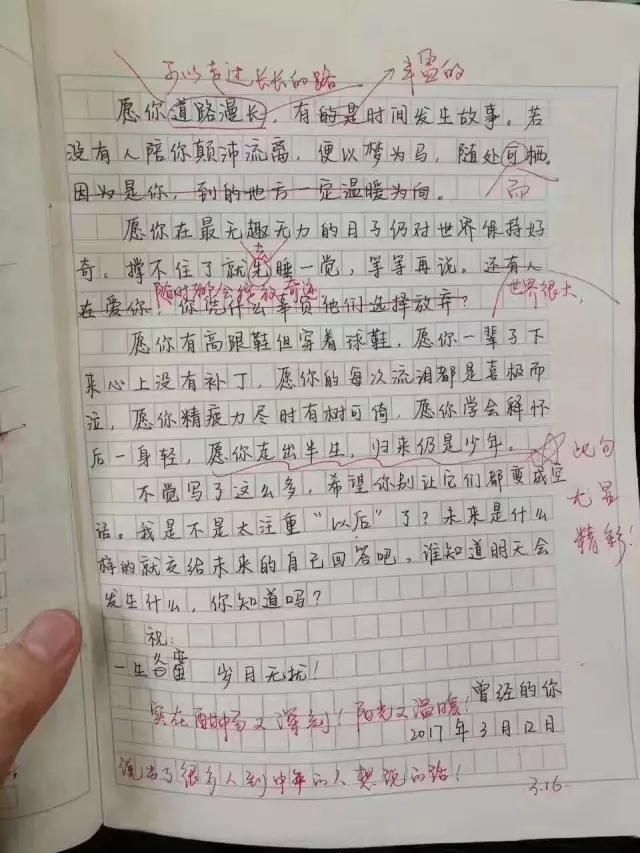 可以走过长长的路 丰盈的
愿你道路漫长，有的是时间发生故事。若
没有人陪你颠沛流离，便以梦为马，随处可栖。
因为是你，到的地方一定温暖为向。 而
愿你在最无趣无力的日子仍对世界保持好
去
奇。撑不住了就先睡一觉，等等再说。还有人
随时都会绽放奇迹 世界很大，
在爱你！你凭什么辜负他们选择放弃？
愿你有高跟鞋但穿着球鞋，愿你一辈子下
来心上没有补丁，愿你的每次流泪都是喜极而
泣，愿你精疲力尽时有树可倚，愿你学会释怀
后一身轻，愿你走出半生，归来仍是少年。 此句
不觉写了这么多，希望你别让它们都变成空 尤显
话。我是不是太注重“以后”了？未来是什么 精彩！
样的就交给未来的自己回答吧，谁知道明天会
发生什么，你知道吗？
祝：
一生 岁月无扰！
曾经的你
实在 又深刻！阳光又温暖！
2017年3月12日
说出了很多人到中年的人想说的话！
3.16